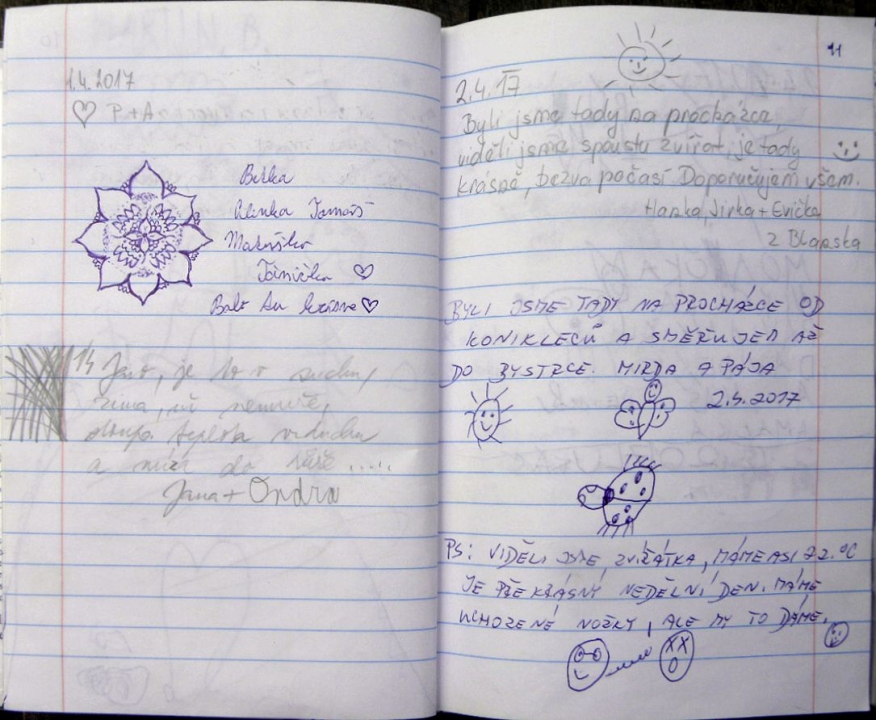 1.4.2017
♡ P+A
Betka
Alenka Tomáš
Makuško
Toinička ♡
Balo
14 Jaro, je to v suchu,
zima, už nemůže,
stoupá teplota vzduchu
a míza do .....
Jana + Ondra
11
2.4.17
Byli jsme tady na procházce
viděli jsme spoustu zvířat, je tady
krásně, bezva počasí Doporučujem všem.
Hanka, Jirka + Evička
z Blanska
BYLI JSME TADY NA PROCHÁZCE OD
KONIKLECŮ A SMĚŘUJEM AŽ
DO BYSTRCE. MIRDA A PÁJA
2.4.2017
PS: VIDĚLI JSME ZVÍŘÁTKA, MÁME ASI 22.°C
JE PŘEKRÁSNÝ NEDĚLNÍ DEN. MÁME
UCHOZENÉ NOŽKY, ALE MY TO DÁME.